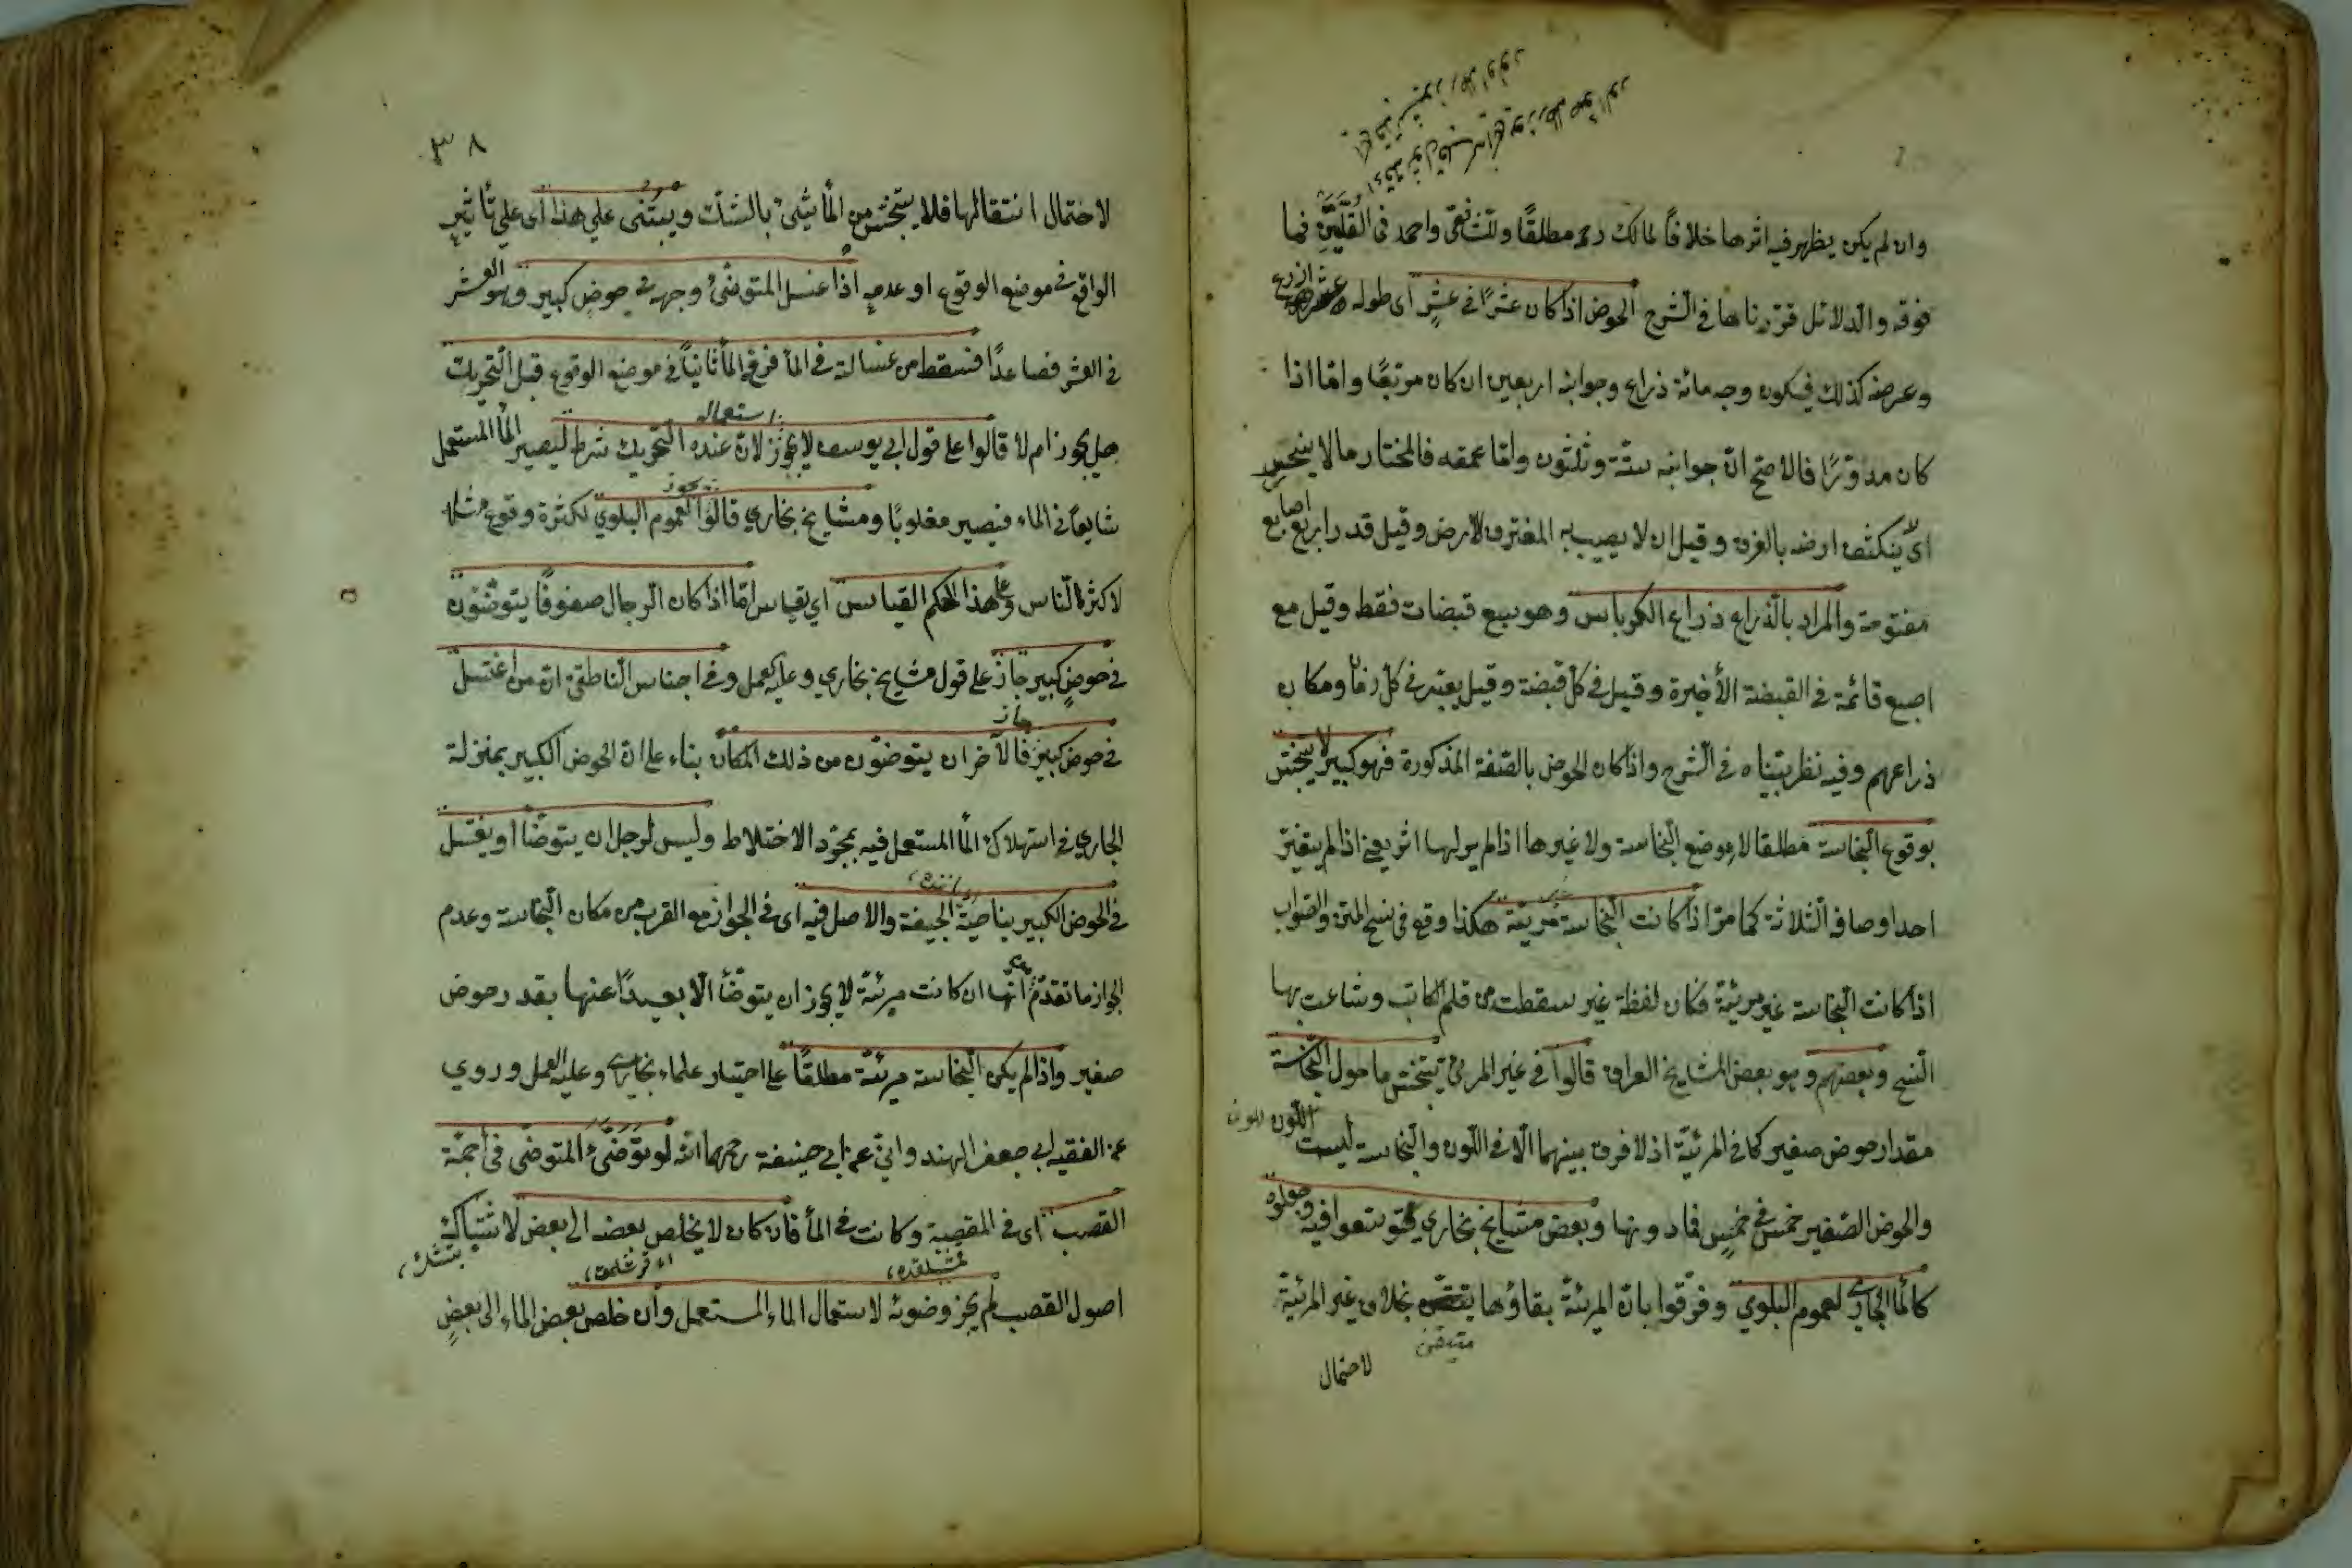 وان لم يكن يظهر فيه اثرها خلافًا لمالك رحمه مطلقًا وللشافعي واحمد في القلتين فما
فوقه والدلائل قررناها في الشرح الحوض اذا كان عشرًا في عشرٍ اى طوله عشر اذرع
وعرضه كذلك فيكون وجه مائة ذراع وجوانبه اربعين ان كان مربعًا واما اذا
كان مدورًا فالاصح ان جوانبه ستة وثلثون واما عمقه فالمختار ما لا ينحسر
اى لا ينكشف ارضه بالغرف وقيل ان لا يصيب يد المغترف الارض وقيل قدر اربع اصابع
مفتوحة والمراد بالذراع ذراع الكرباس وهو سبع قبضات فقط وقيل مع
اصبع قائمة في القبضة الأخيرة وقيل في كل قبضة وقيل يعتبر في كل زمان ومكان
ذراعهم وفيه نظر بيناه في الشرح واذا كان الحوض بالصفة المذكورة فهو كبير لا يتنجس
بوقوع النجاسة مطلقا لا موضع النجاسة ولا غيرها اذا لم ير لها اثر يعنى اذا لم يتغير
احد اوصافه الثلاثة كما مر اذا كانت النجاسة مريئة هكذا وقع في نسخ المتن والصواب
اذا كانت النجاسة غير مريئة فكان لفظة غير سقطت من قلم الكاتب وشاعت بها
النسخ وبعضهم وهو بعض المشايخ العراق قالوا في غير المرئى يتنجس ما حول النجاسة
مقدار حوض صغير كما في المرئية اذ لا فرق بينهما الا في اللون والنجاسة ليست اللون
والحوض الصغير خمس في خمسٍ فما دونها وبعض مشايخ بخارى توسعوا فيه وجعلوه
كالمأ الجارى لعموم البلوى وفرقوا بان المرئية بقاؤها متيقن بخلاف غير المرئية
لاحتمال
٣٨
لاحتمال انتقالها فلا يتنجس من المأ شئ بالشك ويبتنى على هذا اى على تأثير
الواقع في موضع الوقوع او عدمه اذا غسل المتوضئ وجهه في حوض كبير وهو العشر
في العشر فصاعدًا فسقط من غسالته في المأ فرفع المأ ثانيًا في موضع الوقوع قبل التحريك
هل يجوز ام لا قالوا على قول ابى يوسف لا يجوز لان عنده التحريك شرط ليصير المأ المستعمل
استعماله
شايعًا في الماء فيصير مغلوبًا ومشايخ بخارى قالوا يجوز لعموم البلوى لكثرة وقوع مثله
لاكثر الناس وعلى هذا الحكم القياس اى يقاس اما اذا كان الرجال صفوفًا يتوضئون
في حوضٍ كبير جاز على قول مشايخ بخارى وعليه العمل وفى اجناس الناطفى ان من اغتسل
في حوض كبير جاز فالآخر ان يتوضئون من ذلك المكان بناء على ان الحوض الكبير بمنزلة
الجارى في استهلاك المأ المستعمل فيه بمجرد الاختلاط وليس لرجل ان يتوضأ او يغتسل
في الحوض الكبير بناحية الجيفة والاصل فيه اى في الجواز مع القرب من مكان النجاسة وعدم
الجواز ما تقدم انها ان كانت مرئية لا يجوز ان يتوضأ الا بعيدًا عنها بقدر حوض
صغير واذا لم يكن النجاسة مرئية مطلقًا على اختيار علماء بخارى وعليه العمل وروى
عن الفقيه ابى جعفر الهندوانى عن ابى حنيفة رحمهما الله لو توضئ المتوضى في اجمة
القصب اى في المقصبة وكانت في المأ فان كان لا يخلص بعضه الى بعض لاشتباك
اصول القصب لم يجز وضوئه لاستعمال الماء المستعمل وان خلص بعض الماء الى بعضٍ